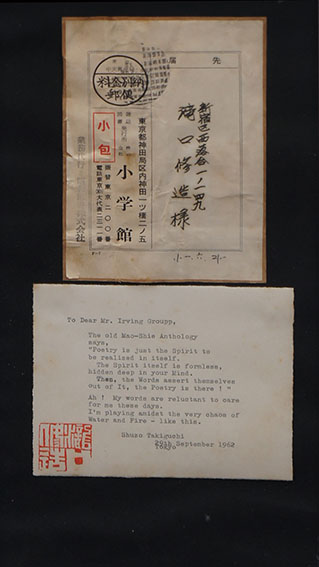 先
届
料金別納
郵便
小包
東京都神田局区内神田一ツ橋二ノ五
小学館
振替東京二〇〇番
新宿区西落合一ノ一四九
瀧口修造様
To Dear Mr. Irving Groupp,
The old Mao-Shie Anthology
says,
"Poetry is just the Spirit to
be realized in itself.
The Spirit itself is formless,
hidden deep in your Mind.
Then, the Words assert themselves
out of It, the Poetry is there ! "
Ah ! My words are reluctant to care
for me these days.
I'm playing amidst the very chaos of
Water and Fire - like this.
Shuzo Takiguchi
29th September 1962
Tokyo